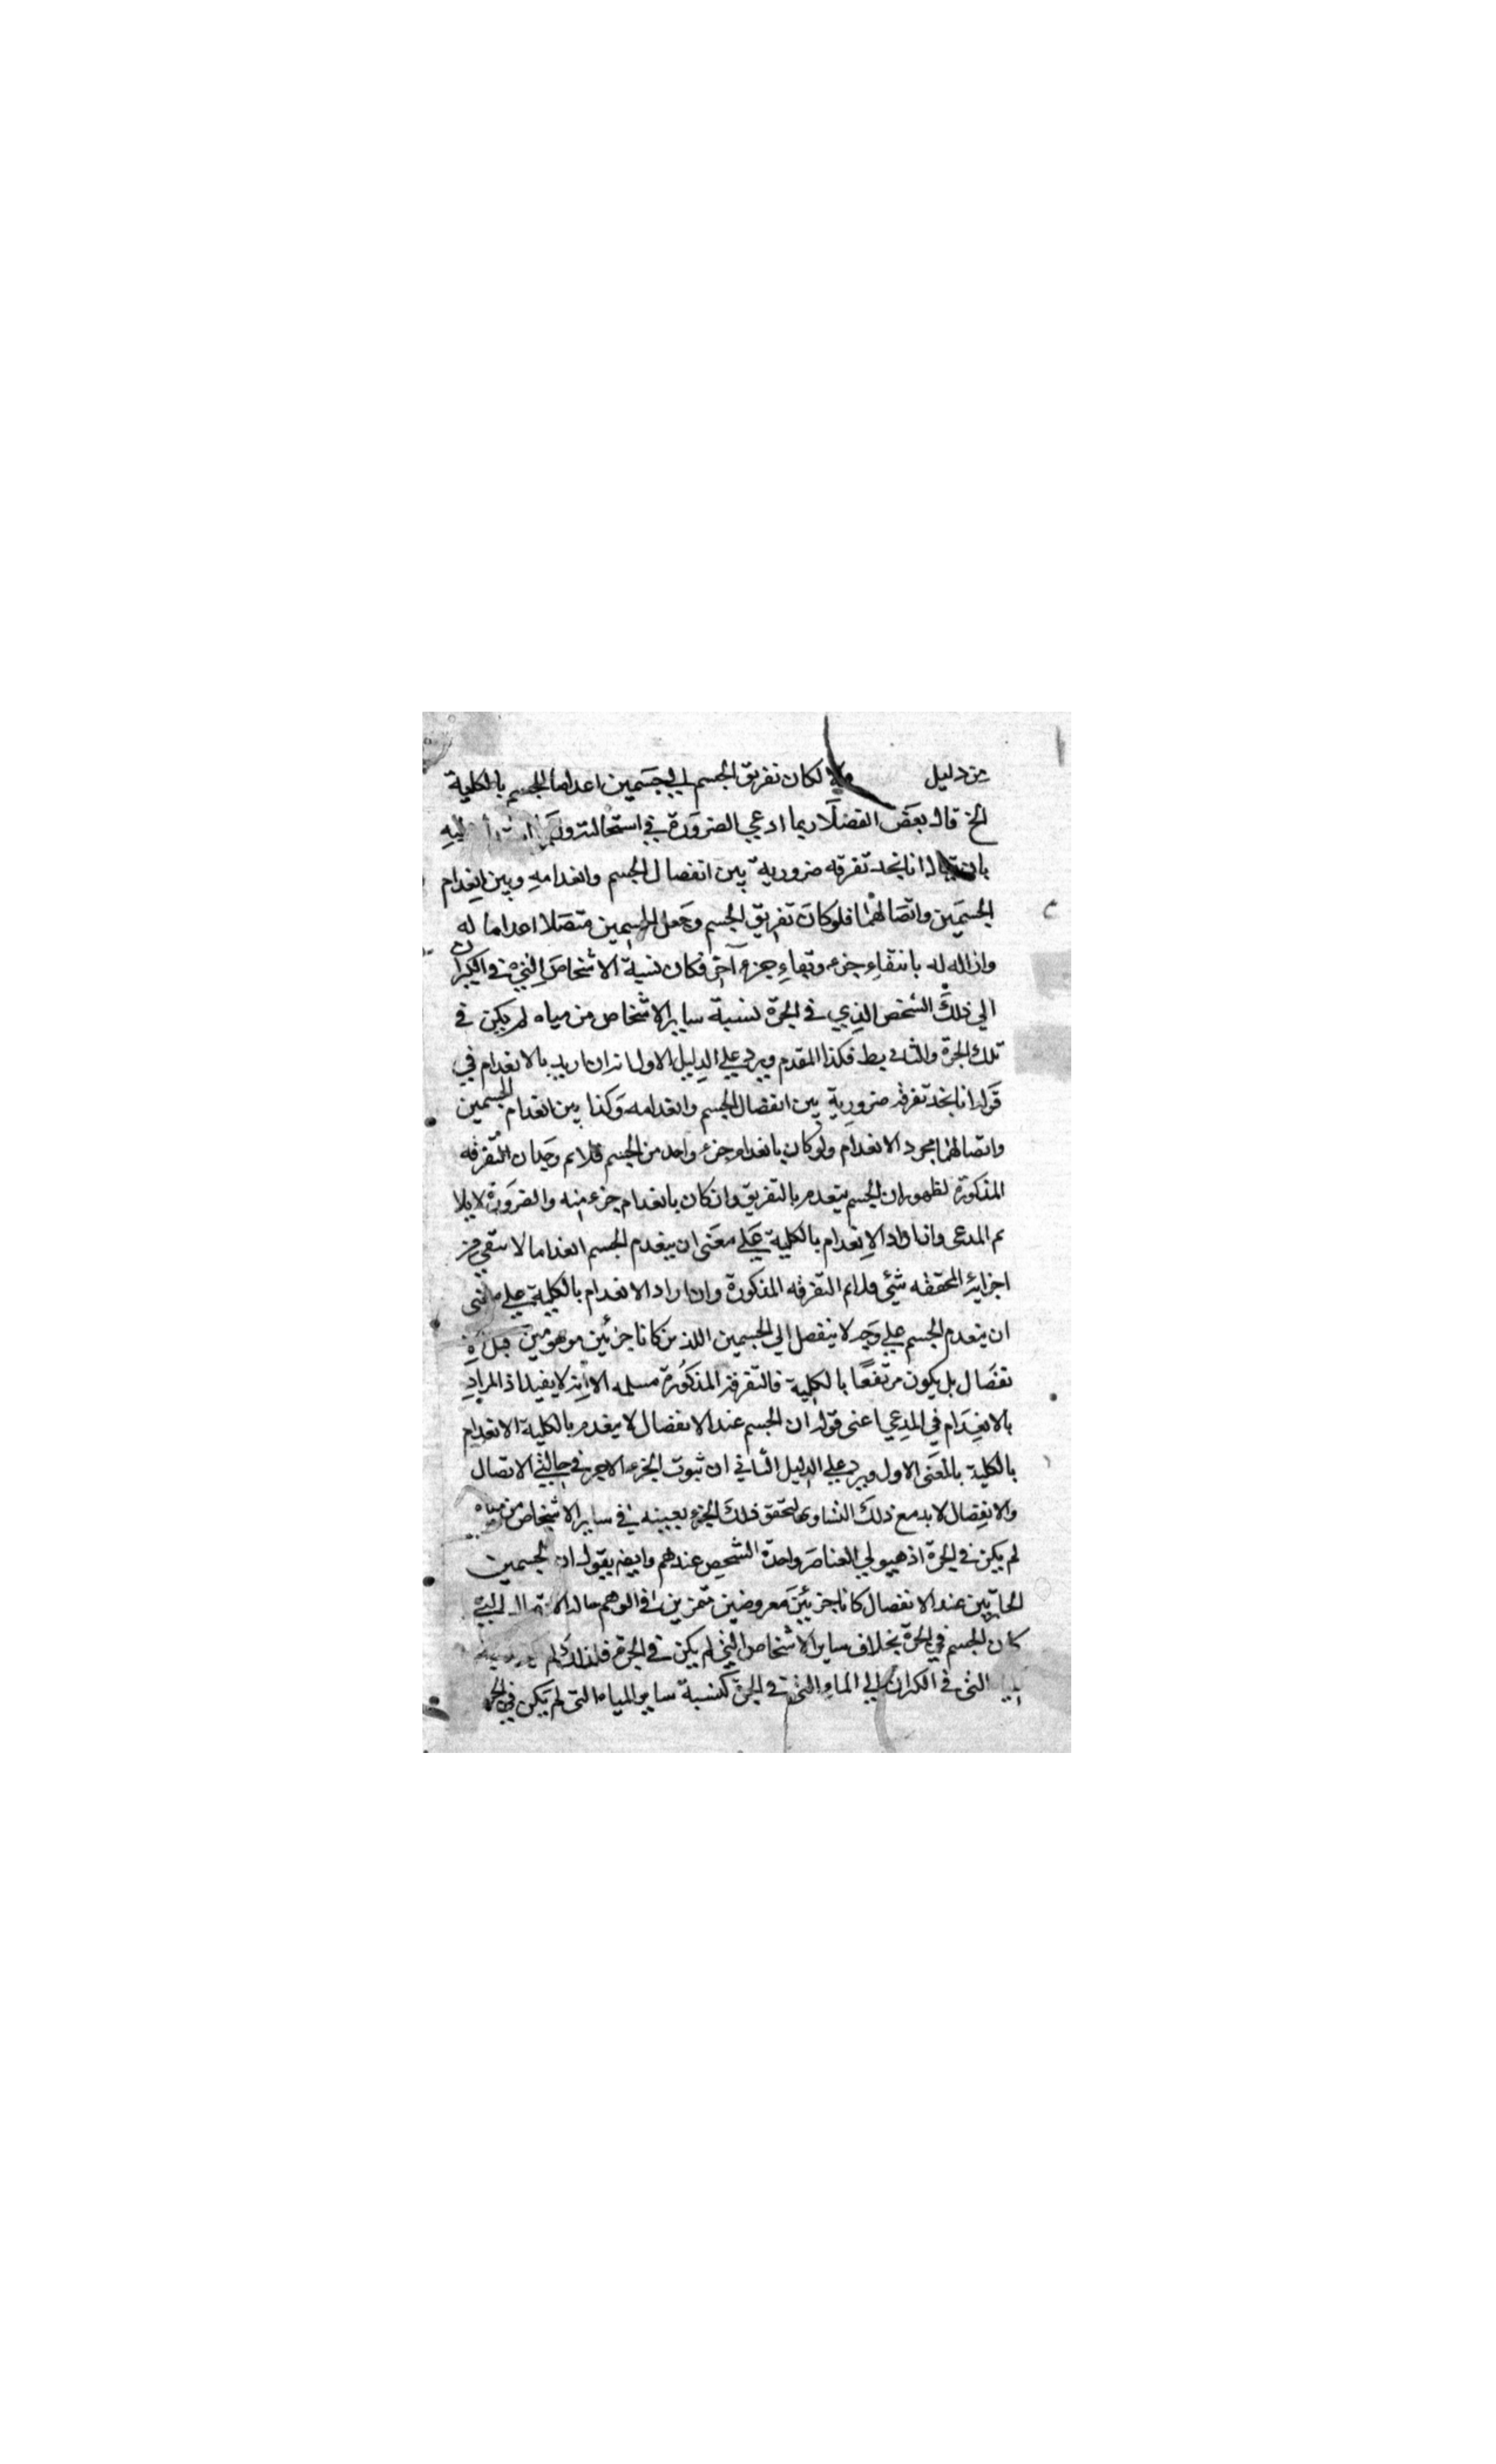 من دليل والا لكان تفريق الجسم الي الجسمين اعداما للجسم بالكلية
الخ قال بعض الفضلا ربما ادعي الضرورة في استحالته
بان يقال انا نجد تفرقه ضرورية بين انفصال الجسم وانعدامه وبين انعدام
الجسمين واتصالهما فلو كان تفريق الجسم وجعل الجسمين متصلا اعداما له
وازاله له بانتفاء جزء وبقاء جزء آخر فكان نسبة الاشخاص التي في الكيزان
الي ذلك الشخص الذي في الجرة نسبة ساير الاشخاص من مياه لم يكن في
تلك الجرة والتالي بط فكذا المقدم ويرد علي الدليل الاول انه ان اريد بالانعدام في
قوله انا نجد تفرقة ضرورية بين انفصال الجسم وانعدامه وكذا بين انعدام الجسمين
واتصالهما مجرد الانعدام ولو كان بانعدام جزء واحد من الجسم فلانم وجدان التفرقه
المذكورة لظهور ان الجسم ينعدم بالتفريق وان كان بانعدام جزء منه والضرورة لا يلا
يم المدعى وان اراد الانعدام بالكلية علي معنى ان ينعدم الجسم انعداما لا يبقي من
اجزائه المحققه شئي فلانم التفرقه المذكورة وان اراد الانعدام بالكلية علي معنى
ان ينعدم الجسم علي وجه لا ينفصل الي الجسمين اللذين كانا جزئين موهومين قبل الا
نفصال بل يكون مرتفعا بالكلية فالتفرقة المذكورة مسلمه الا انه لا يفيد اذ المراد
بالانعدام في المدعي اعنى قوله ان الجسم عند الانفصال لا ينعدم بالكلية الانعدام
بالكلية بالمعنى الاول ويرد علي الدليل الثاني ان ثبوت الجزء الاخر في حالتي الاتصال
والانفصال لابد مع ذلك التساوي لتحقق ذلك الجزء بعينه في ساير الاشخاص من مياه
لم يكن في الجرة اذ هيولي العناصر واحدة الشخص عندهم وايضا يقول ان الجسمين
الحادثين عند الانفصال كانا جزئين معروضين متمزين في الوهم حال الاتصال التي
كان الجسم في الجرة بخلاف ساير الاشخاص التي لم يكن في الجرة فلذلك لم يكن نسبة
التى في الكيزان الي الماء التي في الجرة كنسبة ساير المياه التى لم يكن في الجرة